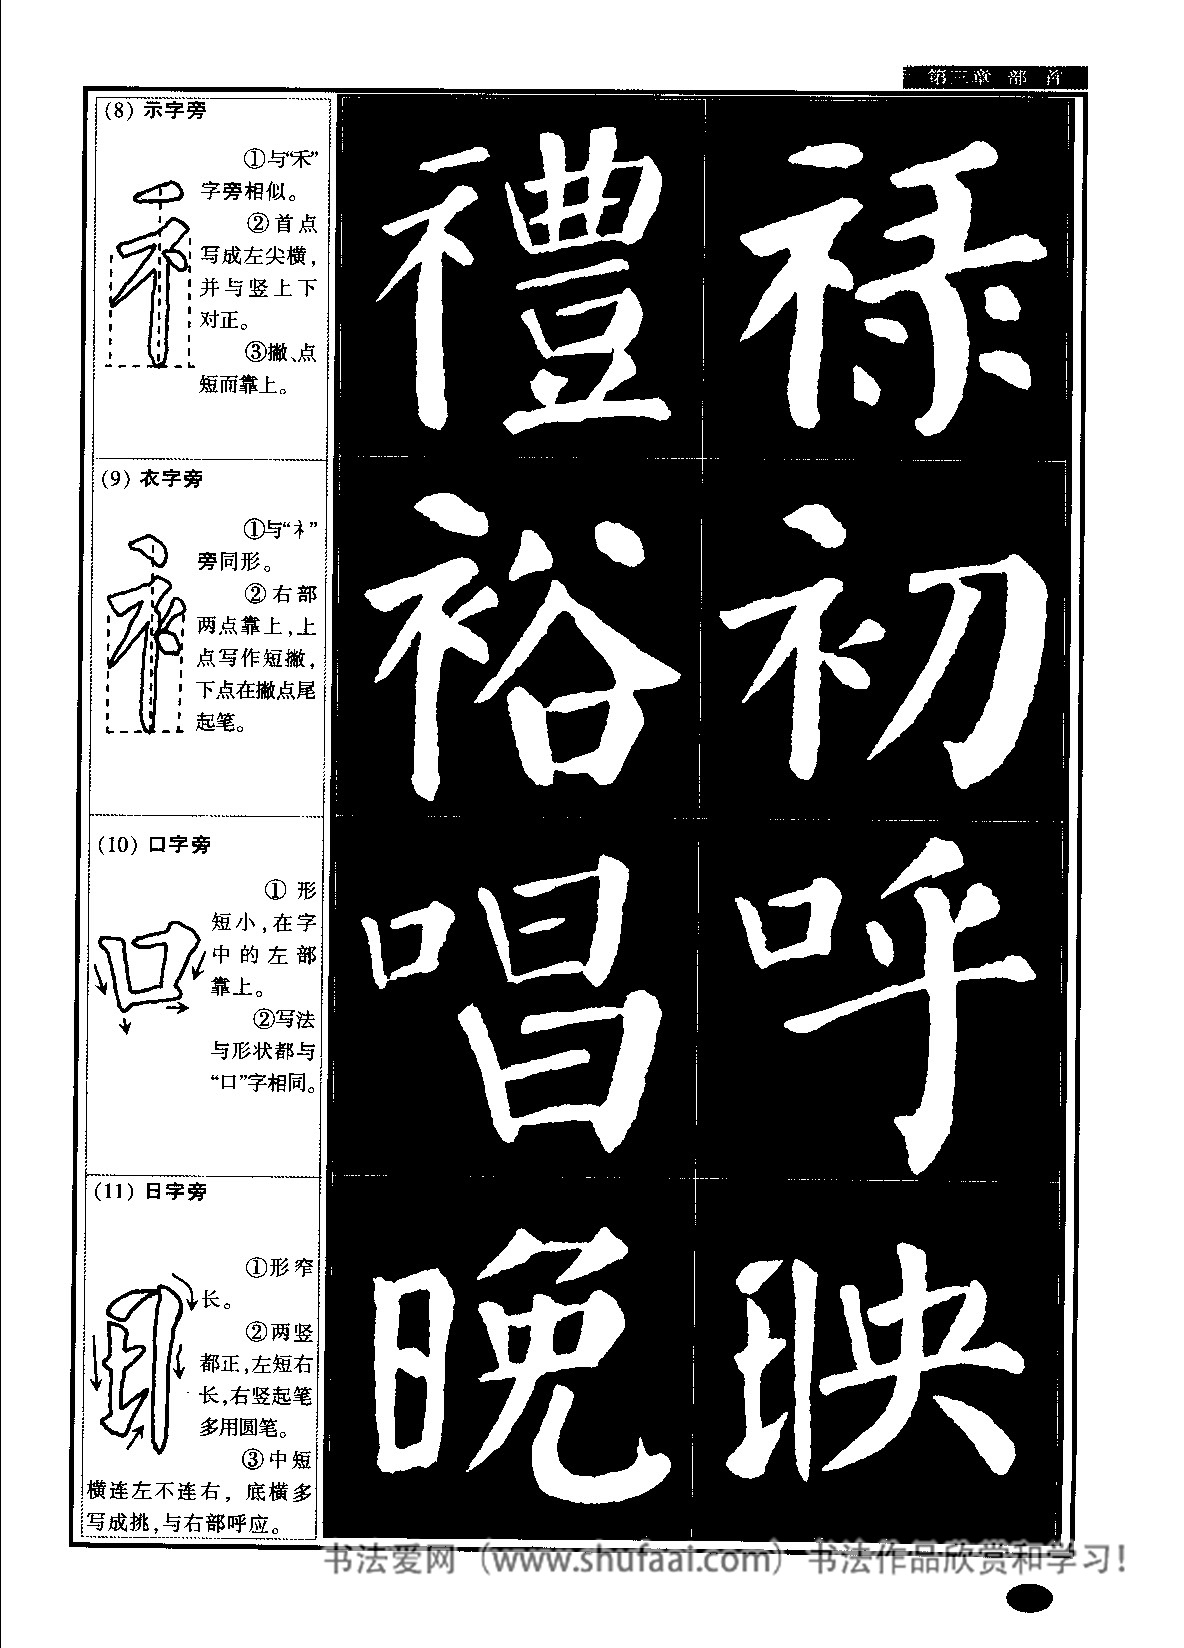 第三章 部 首
(8) 示字旁
①与“禾”
字旁相似。
②首点
写成左尖横，
并与竖上下
对正。
③撇、点
短而靠上。
禮 禄
(9) 衣字旁
①与“礻”
旁同形。
②右部
两点靠上，上
点写作短撇，
下点在撇点尾
起笔。
裕 初
(10) 口字旁
①形
短小，在字
中的左部
靠上。
②写法
与形状都与
“口”字相同。
唱 呼
(11) 日字旁
①形窄
长。
②两竖
都正，左短右
长，右竖起笔
多用圆笔。
③中短
横连左不连右，底横多
写成挑，与右部呼应。
晚 映
书法爱网（www.shufaai.com）书法作品欣赏和学习！